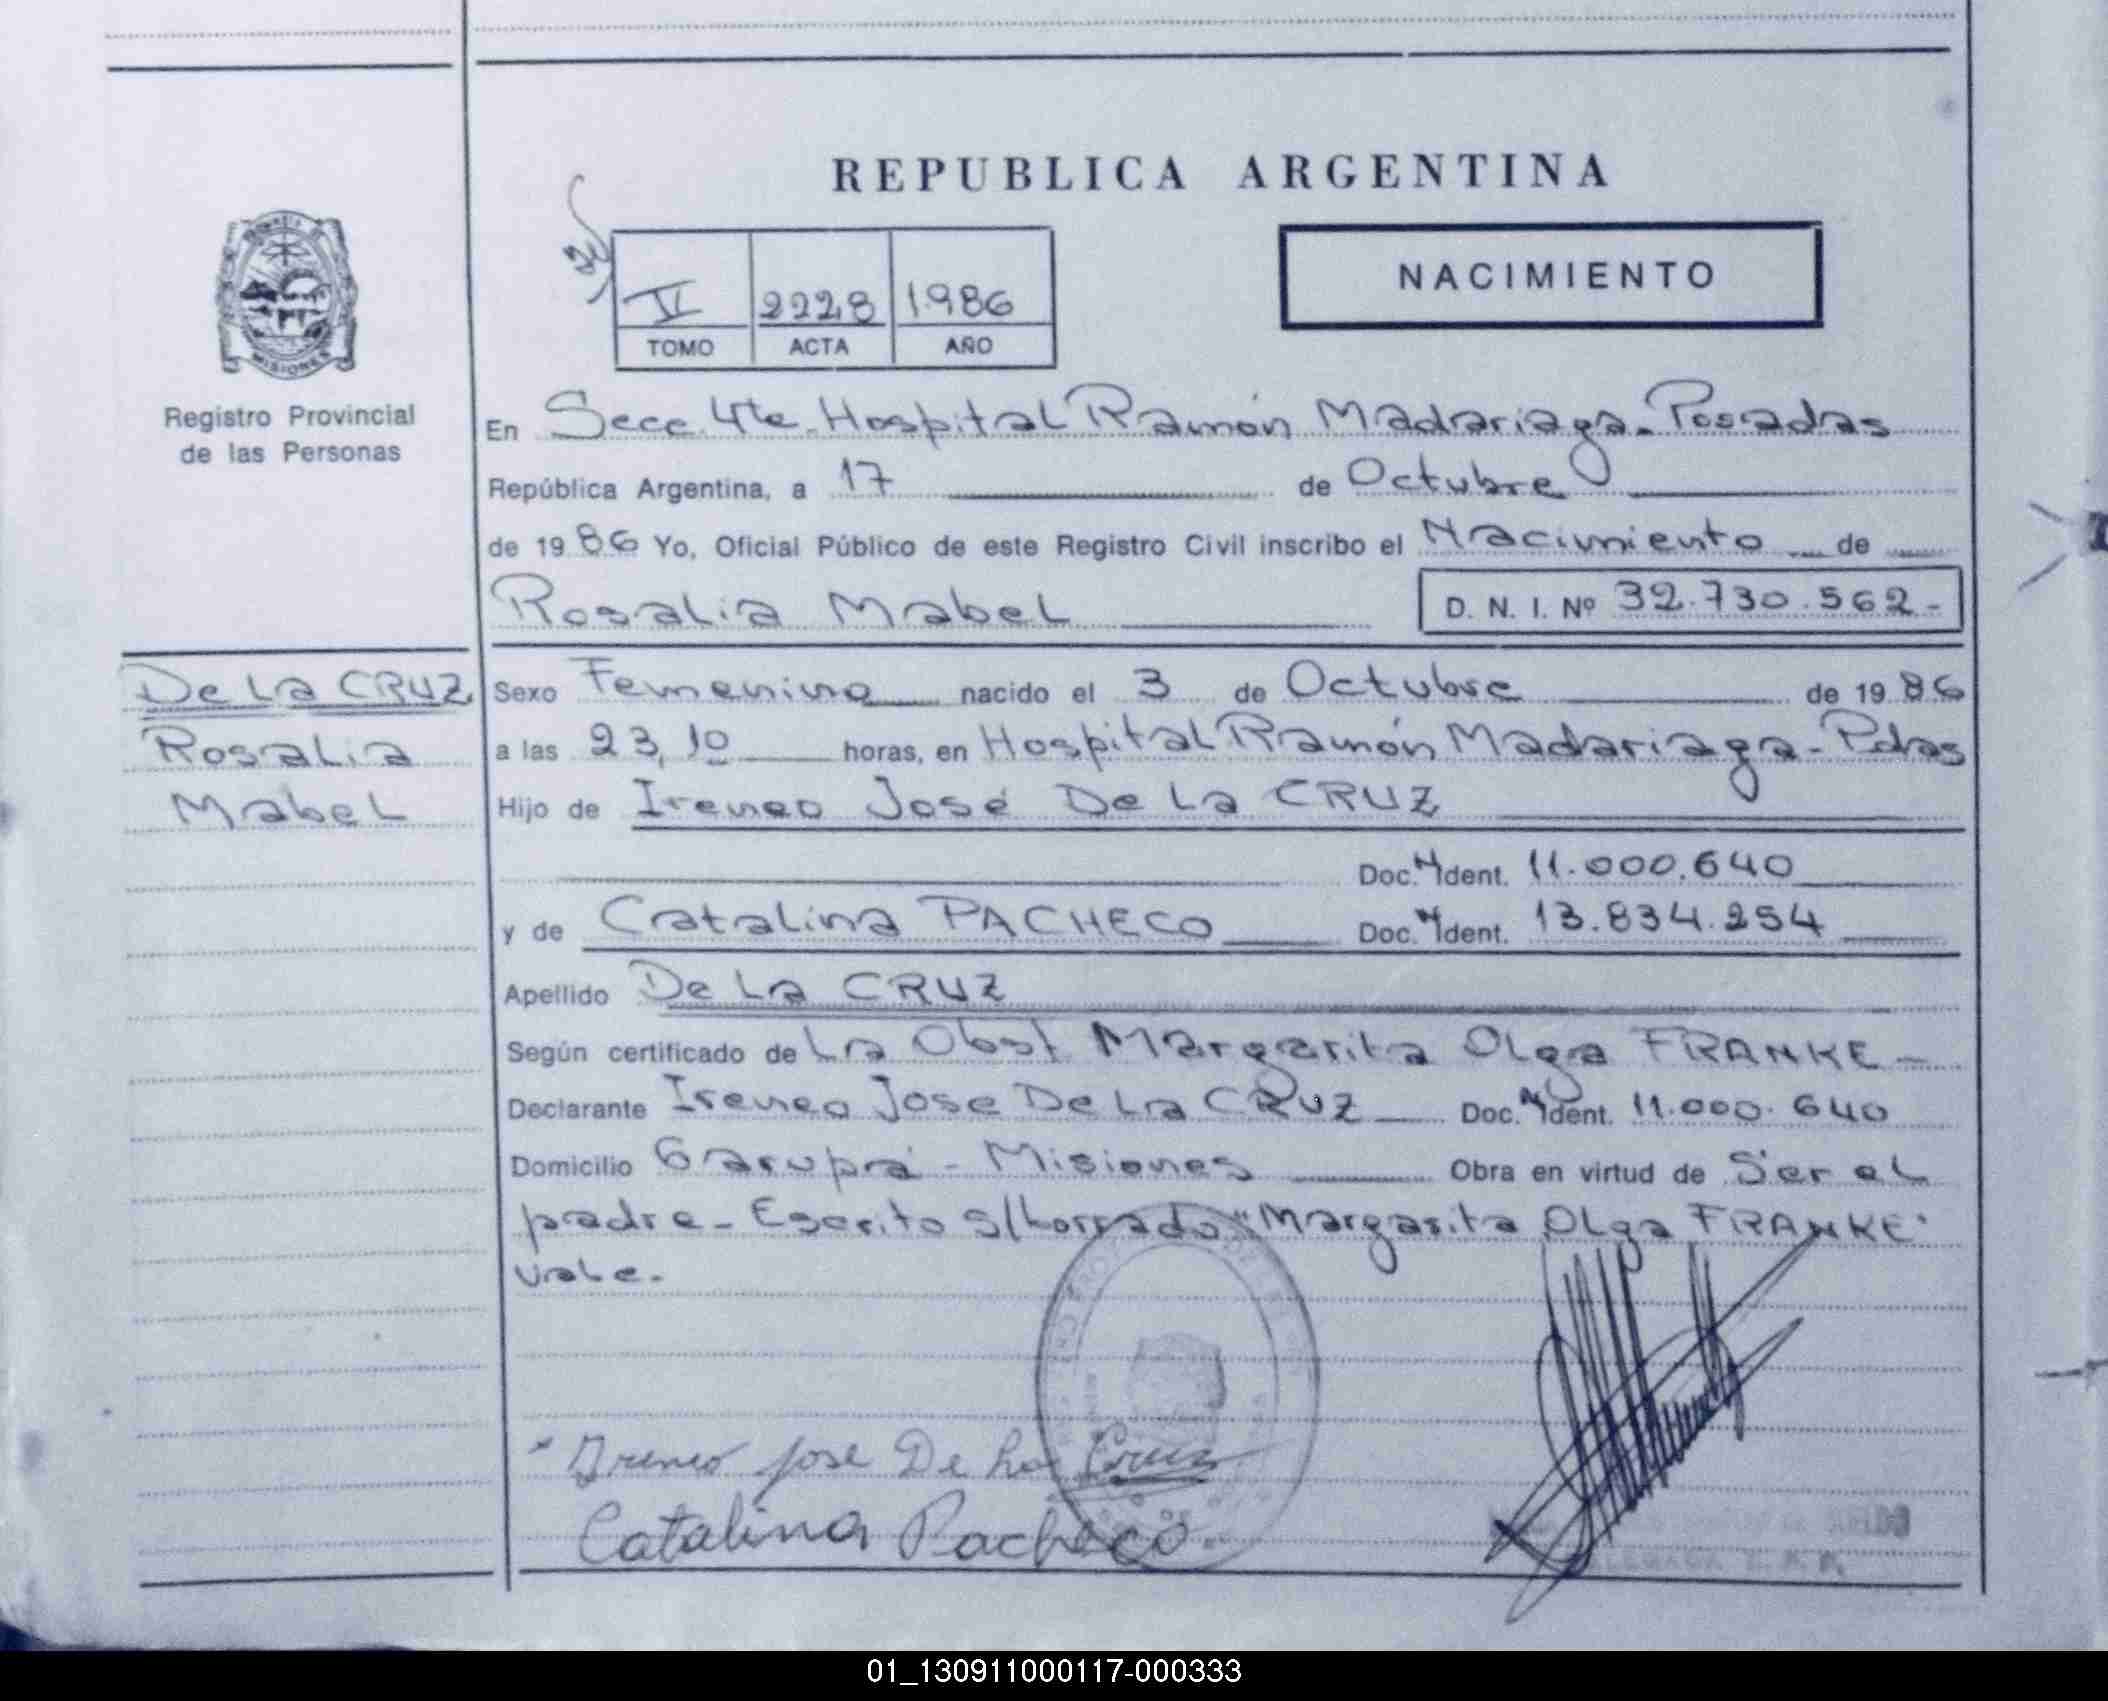 REPUBLICA ARGENTINA
NACIMIENTO
2228 1986
TOMO ACTA AÑO
MISIONES
Registro Provincial
de las Personas
En Secc. 4ta. Hospital Ramón Madariaga - Posadas
República Argentina, a 17 de Octubre
de 1986 Yo, Oficial Público de este Registro Civil inscribo el Nacimiento de
Rosalia Mabel D. N. I. Nº 32.730.562-
De La CRUZ
Rosalia
Mabel
Sexo Femenino nacido el 3 de Octubre de 1986
a las 23,10 horas, en Hospital Ramón Madariaga - Pdas
Hijo de Ireneo José De La CRUZ
Doc. N Ident. 11.000.640
y de Catalina PACHECO Doc. N Ident. 13.834.254
Apellido De La CRUZ
Según certificado de La Obst Margarita Olga FRANKE -
Declarante Ireneo Jose De La CRUZ Doc. N Ident. 11.000.640
Domicilio Garupá - Misiones Obra en virtud de Ser el
padre - Escrito s/borrado "Margarita Olga FRANKE"
vale.
Ireneo jose De La Cruz
Catalina Pacheco
01_130911000117-000333